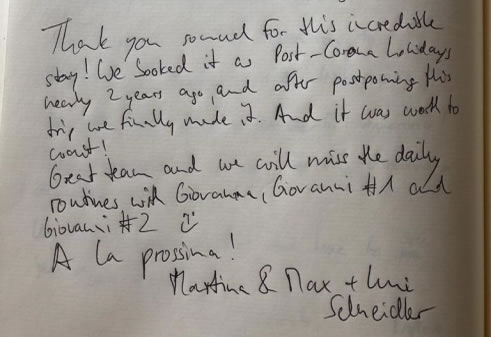 Thank you so much for this incredible
stay! We booked it as Post-Corona holidays
nearly 2 years ago, and after postponing this
trip we finally made it. And it was worth to
wait!
Great team and we will miss the daily
routines with Giovanna, Giovanni #1 and
Giovanni #2 ☺
A la prossima!
Martina & Max +
Schneidler